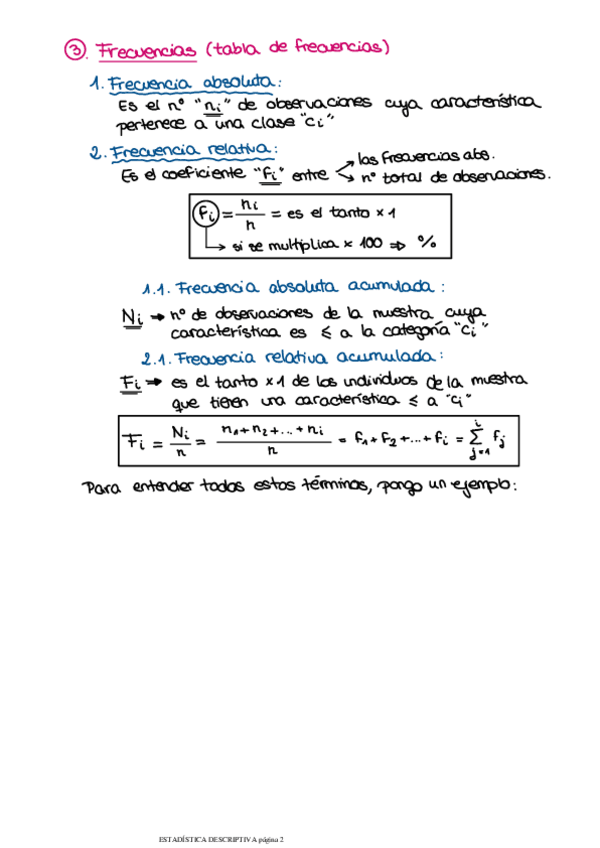 ③. Frecuencias (tabla de frecuencias)
1. Frecuencia absoluta:
Es el nº "ni" de observaciones cuya característica
pertenece a una clase "ci"
2. Frecuencia relativa:
Es el coeficiente "fi" entre → las frecuencias abs.
→ nº total de observaciones.
fi = ni/n = es el tanto x 1
→ si se multiplica x 100 ⇒ %
1.1. Frecuencia absoluta acumulada:
Ni → nº de observaciones de la muestra cuya
característica es ≤ a la categoría "ci"
2.1. Frecuencia relativa acumulada:
Fi → es el tanto x 1 de los individuos de la muestra
que tienen una característica ≤ a "ci"
Fi = Ni/n = (n1+n2+...+ni)/n = f1+f2+...+fi = Σ(j=1, i) fj
Para entender todos estos términos, pongo un ejemplo:
ESTADÍSTICA DESCRIPTIVA página 2